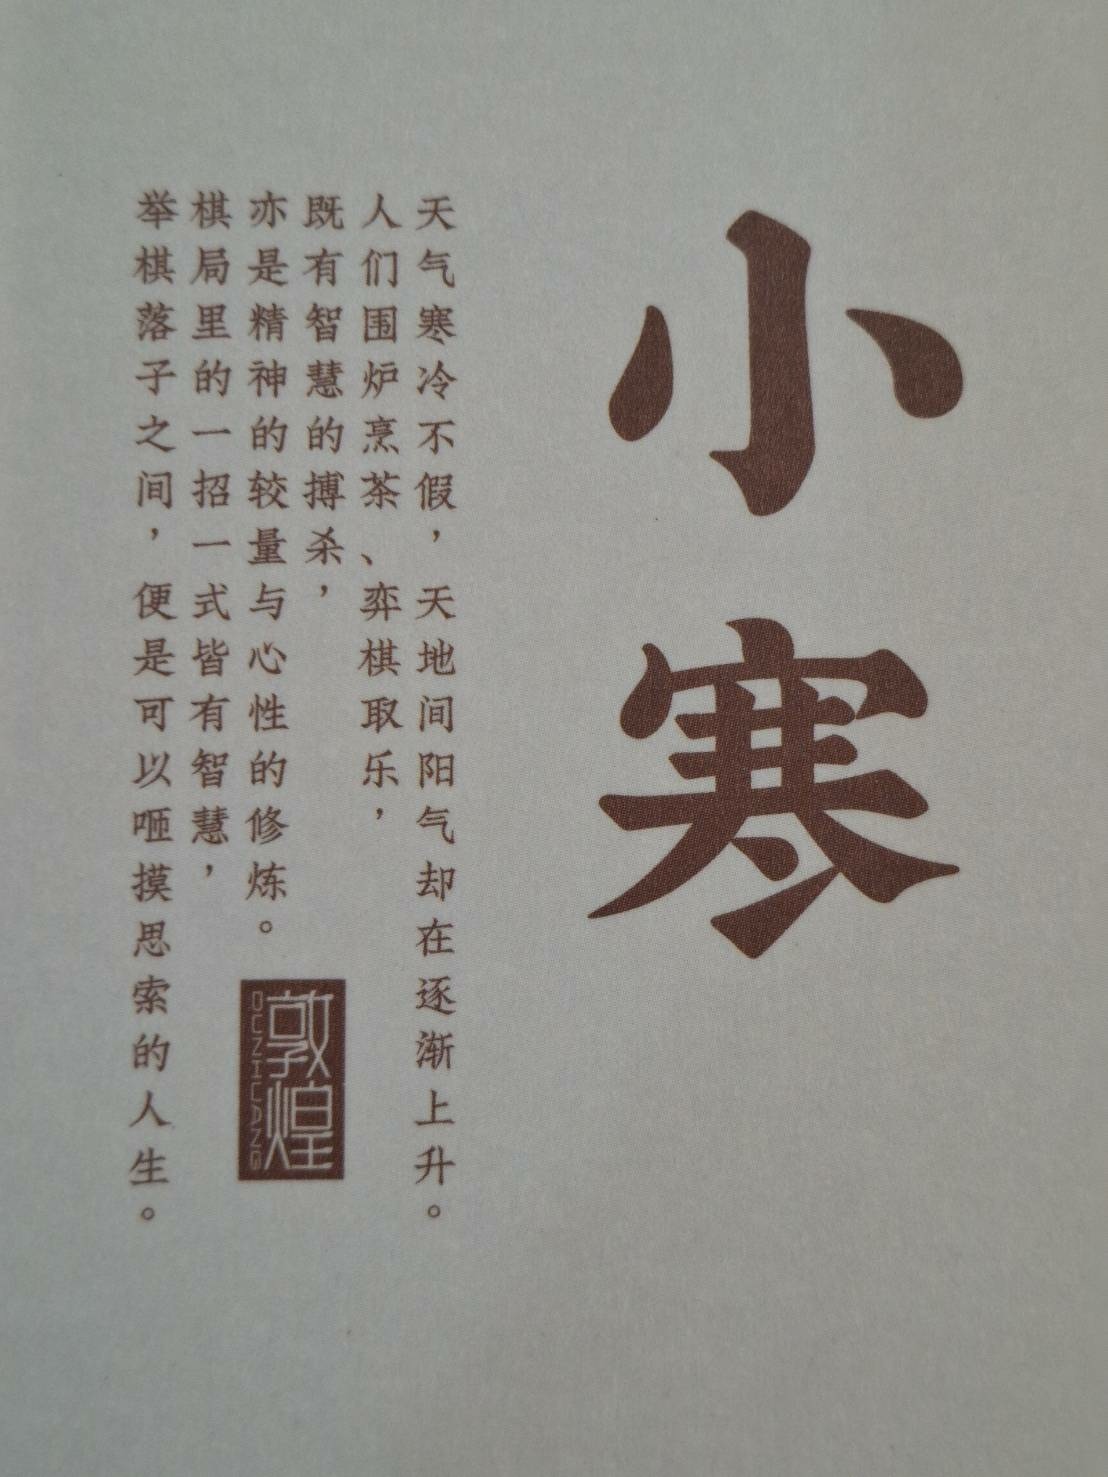 小寒
天气寒冷不假，天地间阳气却在逐渐上升。
人们围炉烹茶、弈棋取乐，
既有智慧的搏杀，
亦是精神的较量与心性的修炼。
棋局里的一招一式皆有智慧，
举棋落子之间，便是可以咂摸思索的人生。
敦煌